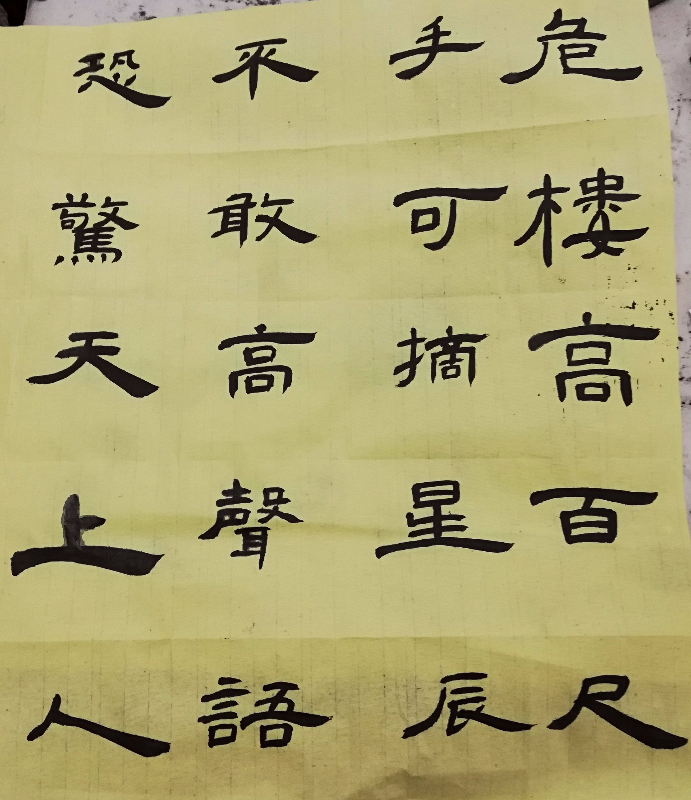 危楼高百尺
手可摘星辰
不敢高聲語
恐驚天上人